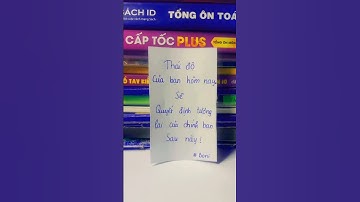 SÁCH ID
TỔNG ÔN TOÁ
CẤP TỐC PLUS
Thái độ
Của bạn hôm nay
Sẽ
Quyết định tương
lai của chính bạn
Sau này!